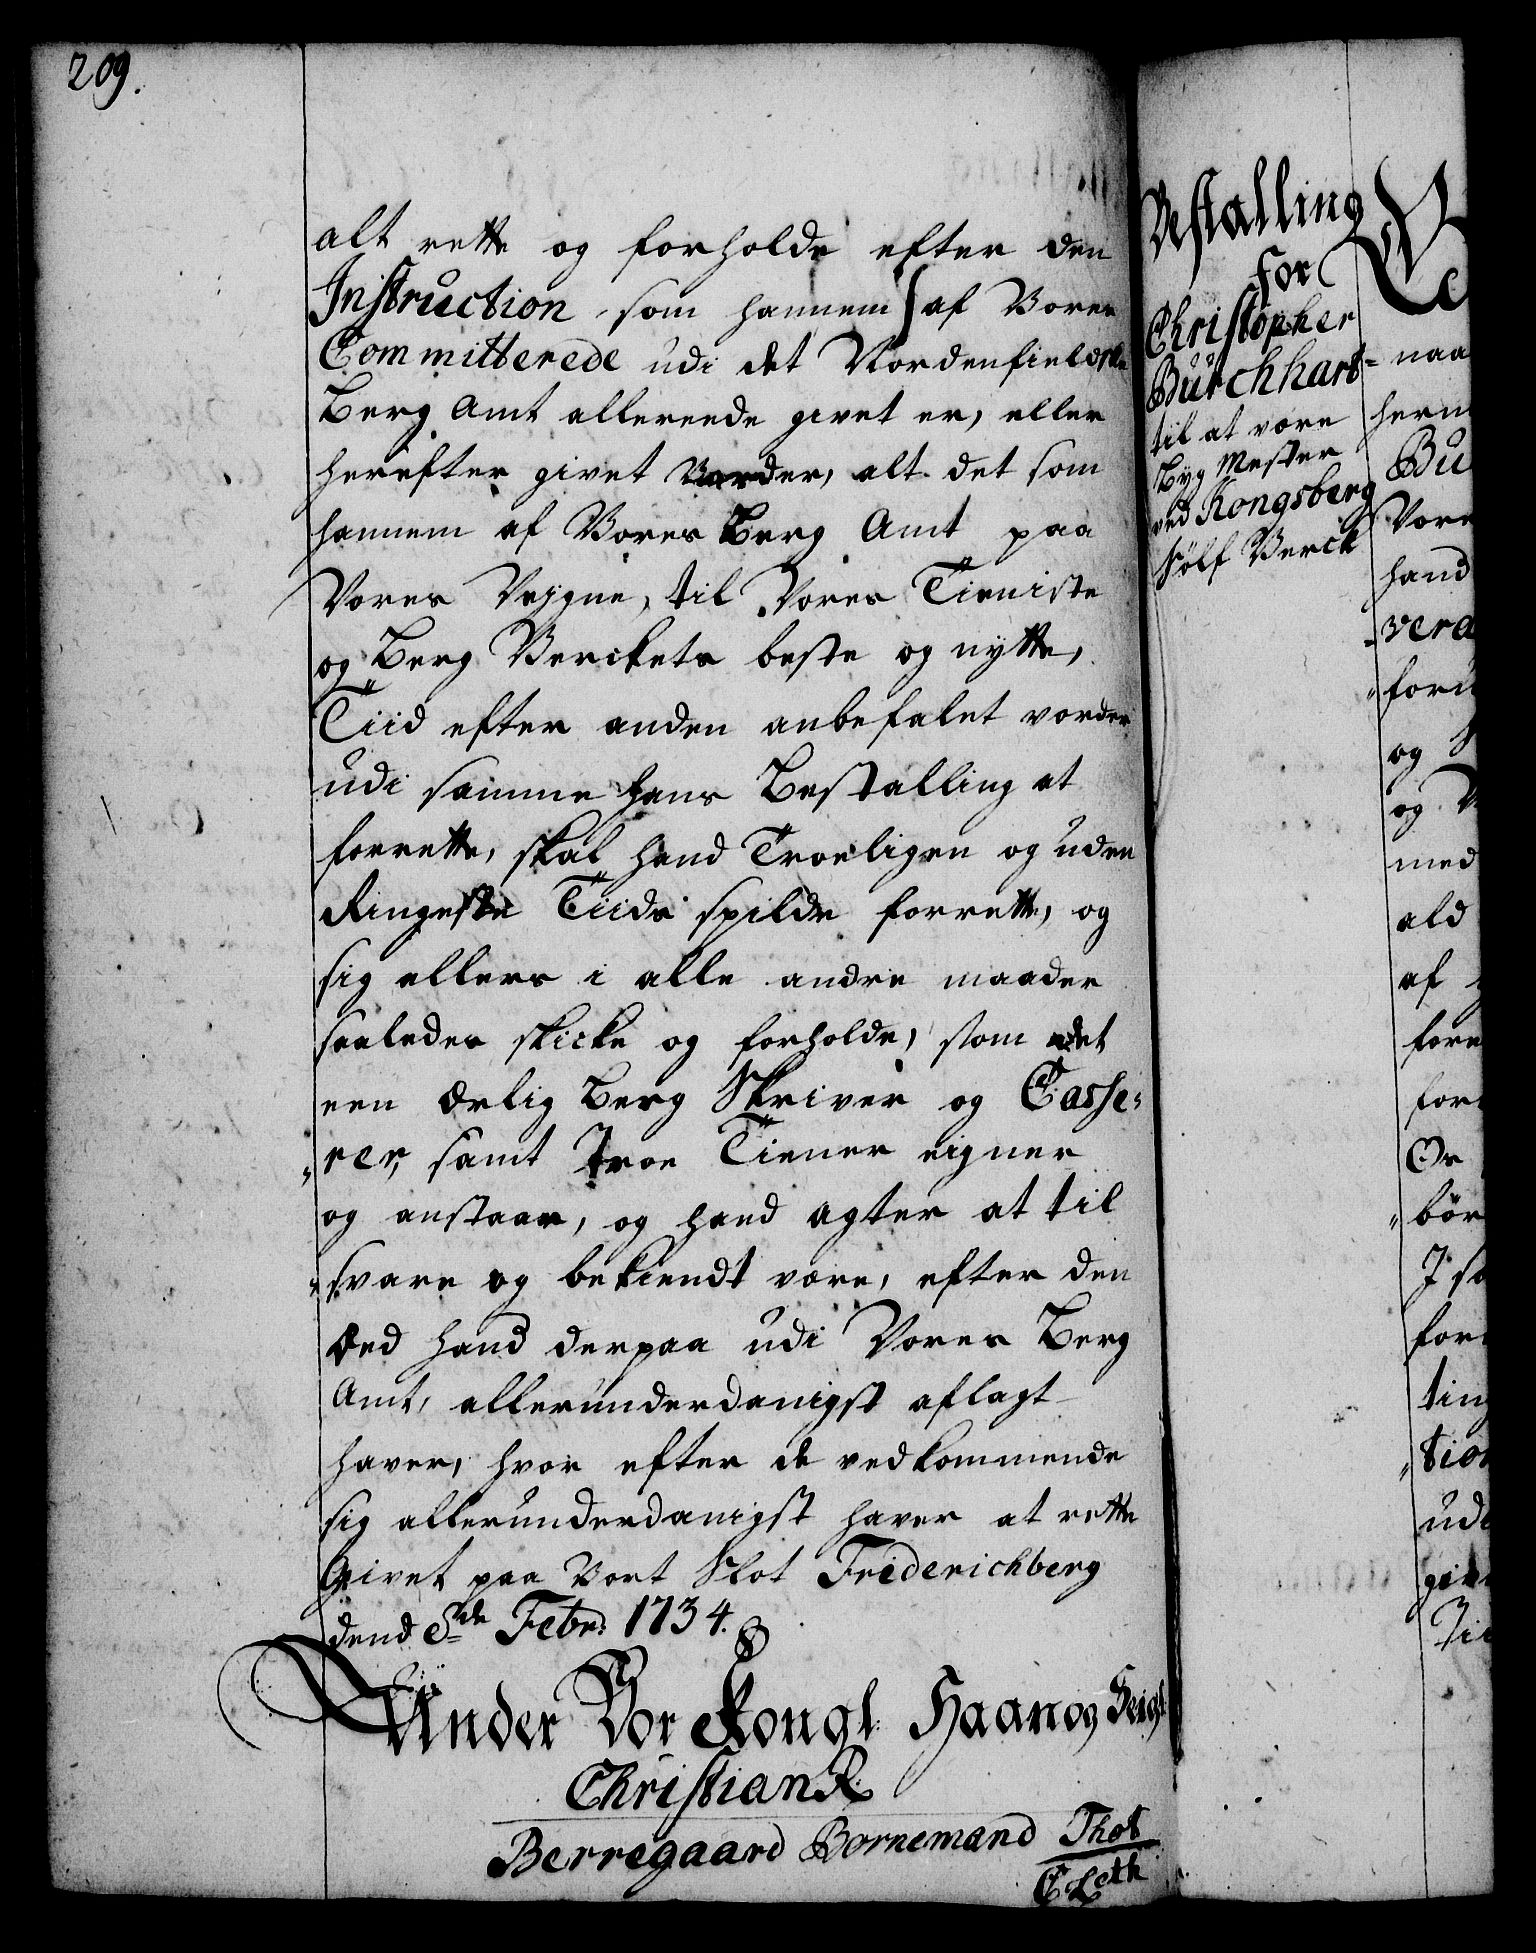 209.
alt rette og forholde efter den
Instruction som hannem af Vores
Committerede udi det Nordenfieldske
Berg Amt allereede givet er, eller
herefter givet Vorder, alt det som
hannem af Vores Berg Amt paa
Vores Vejgne, til Vores Tieniste
og Berg Verckets beste og nytte,
Tiid efter anden anbefalet vorder
udi samme hans Bestalling at
forrette, skal hand Troeligen og uden
Ringeste Tiids spilde forrette, og
sig ellers i alle andre maader
saaledes skicke og forholde, som det
een Ærlig Berg Skriver og Casse-
rer, samt troe Tiener eigner
og anstaar, og hand agter at til
svare og bekiendt være, efter den
Æed hand derpaa udi Vores Berg
Amt, allerunderdanigst aflagt
haver, hvor efter de vedkommende
sig allerunderdanigst haver at rette
Givet paa Vort Slot Friderichberg
dend 8de Febr: 1734.
Under Vor Kongl: Haand og Seigl:
Christian R.
Berregaard Bornemand Thot
C Leth
Bestalling
for
Christopher
Burchhart
til at være
Byg Mester
ved Kongsberg
Sølf Verck
naa
hern
Bu
Vore
hand
vera
foru
og
og
med
ald
af
fore
for
Or
bör
I sa
for
ting
tion
udi
give
Tii